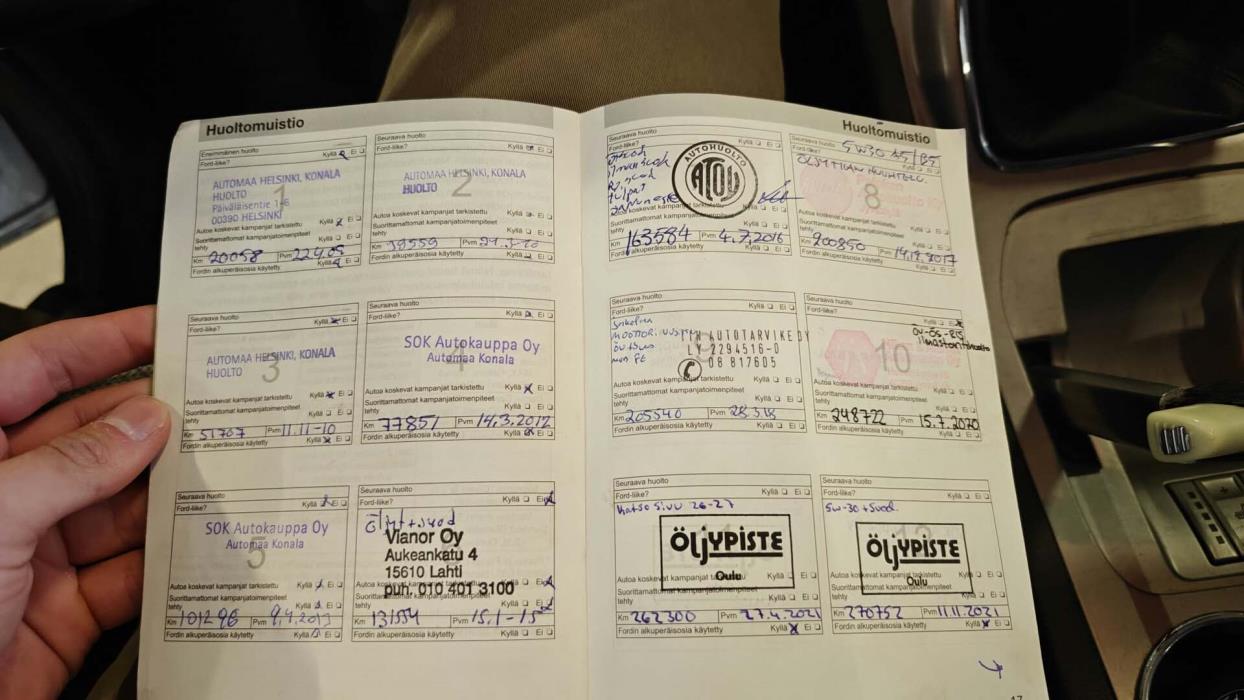 Huoltomuistio
Ensimmäinen huolto
Ford-liike? Kyllä Ei
AUTOMAA HELSINKI, KONALA
HUOLTO
Päiväläisentie 1-6
00390 HELSINKI
1
Autoa koskevat kampanjat tarkistettu Kyllä Ei
Suorittamattomat kampanjatoimenpiteet
tehty Kyllä Ei
Km 20058 Pvm
Fordin alkuperäisosia käytetty Kyllä Ei
Seuraava huolto
Ford-liike? Kyllä Ei
AUTOMAA HELSINKI, KONALA
HUOLTO
2
Autoa koskevat kampanjat tarkistettu Kyllä Ei
Suorittamattomat kampanjatoimenpiteet
tehty Kyllä Ei
Km 39559 Pvm
Fordin alkuperäisosia käytetty Kyllä Ei
Seuraava huolto
Ford-liike? Kyllä Ei
AUTOMAA HELSINKI, KONALA
HUOLTO
3
Autoa koskevat kampanjat tarkistettu Kyllä Ei
Suorittamattomat kampanjatoimenpiteet
tehty Kyllä Ei
Km 51707 Pvm 11.11-10
Fordin alkuperäisosia käytetty Kyllä Ei
Seuraava huolto
Ford-liike? Kyllä Ei
SOK Autokauppa Oy
Automaa Konala
Autoa koskevat kampanjat tarkistettu Kyllä Ei
Suorittamattomat kampanjatoimenpiteet
tehty Kyllä Ei
Km 77851 Pvm 14.3.2012
Fordin alkuperäisosia käytetty Kyllä Ei
Seuraava huolto
Ford-liike? Kyllä Ei
SOK Autokauppa Oy
Automaa Konala
5
Autoa koskevat kampanjat tarkistettu Kyllä Ei
Suorittamattomat kampanjatoimenpiteet
tehty Kyllä Ei
Km 101296 Pvm 9.4.2013
Fordin alkuperäisosia käytetty Kyllä Ei
Seuraava huolto
Ford-liike? Kyllä Ei
Öljyt+suod
Vianor Oy
Aukeankatu 4
15610 Lahti
puh: 010 401 3100
Autoa koskevat kampanjat tarkistettu Kyllä Ei
Suorittamattomat kampanjatoimenpiteet
tehty Kyllä Ei
Km 131554 Pvm 15.1-15
Fordin alkuperäisosia käytetty Kyllä Ei
Huoltomuistio
Seuraava huolto
Ford-liike? Kyllä Ei
AUTOHUOLTO
ATOY
Kyllä Ei
Suorittamattomat kampanjatoimenpiteet
tehty Kyllä Ei
Km 163584 Pvm 4.7.2016
Fordin alkuperäisosia käytetty Kyllä Ei
Seuraava huolto
5W30 A5/B5
Ford-liike? Kyllä Ei
8
Autoa koskevat kampanjat tarkistettu Kyllä Ei
Suorittamattomat kampanjatoimenpiteet
tehty Kyllä Ei
Km 200850 Pvm 14.12.2017
Fordin alkuperäisosia käytetty Kyllä Ei
Seuraava huolto
Ford-liike? Kyllä Ei
AUTOTARVIKE OY
LY 2294516-0
08 817605
Autoa koskevat kampanjat tarkistettu Kyllä Ei
Suorittamattomat kampanjatoimenpiteet
tehty Kyllä Ei
Km 205540 Pvm 28.3.18
Fordin alkuperäisosia käytetty Kyllä Ei
Seuraava huolto
Ford-liike? Kyllä Ei
10
Autoa koskevat kampanjat tarkistettu Kyllä Ei
Suorittamattomat kampanjatoimenpiteet
tehty Kyllä Ei
Km 248722 Pvm 15.7.2020
Fordin alkuperäisosia käytetty Kyllä Ei
Seuraava huolto
Ford-liike? Kyllä Ei
Katso sivu 26-27
ÖLJYPISTE
Oulu
Autoa koskevat kampanjat tarkistettu Kyllä Ei
Suorittamattomat kampanjatoimenpiteet
tehty Kyllä Ei
Km 262300 Pvm 27.4.2021
Fordin alkuperäisosia käytetty Kyllä Ei
Seuraava huolto
Ford-liike? Kyllä Ei
5w-30 + Suod.
ÖLJYPISTE
Oulu
Autoa koskevat kampanjat tarkistettu Kyllä Ei
Suorittamattomat kampanjatoimenpiteet
tehty Kyllä Ei
Km 270752 Pvm 11.11.2021
Fordin alkuperäisosia käytetty Kyllä Ei